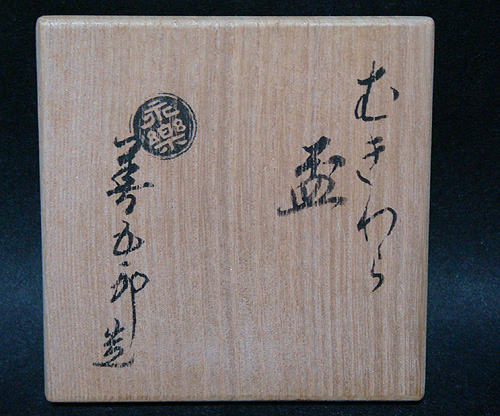 むきわら
盃
永樂
善五郎造